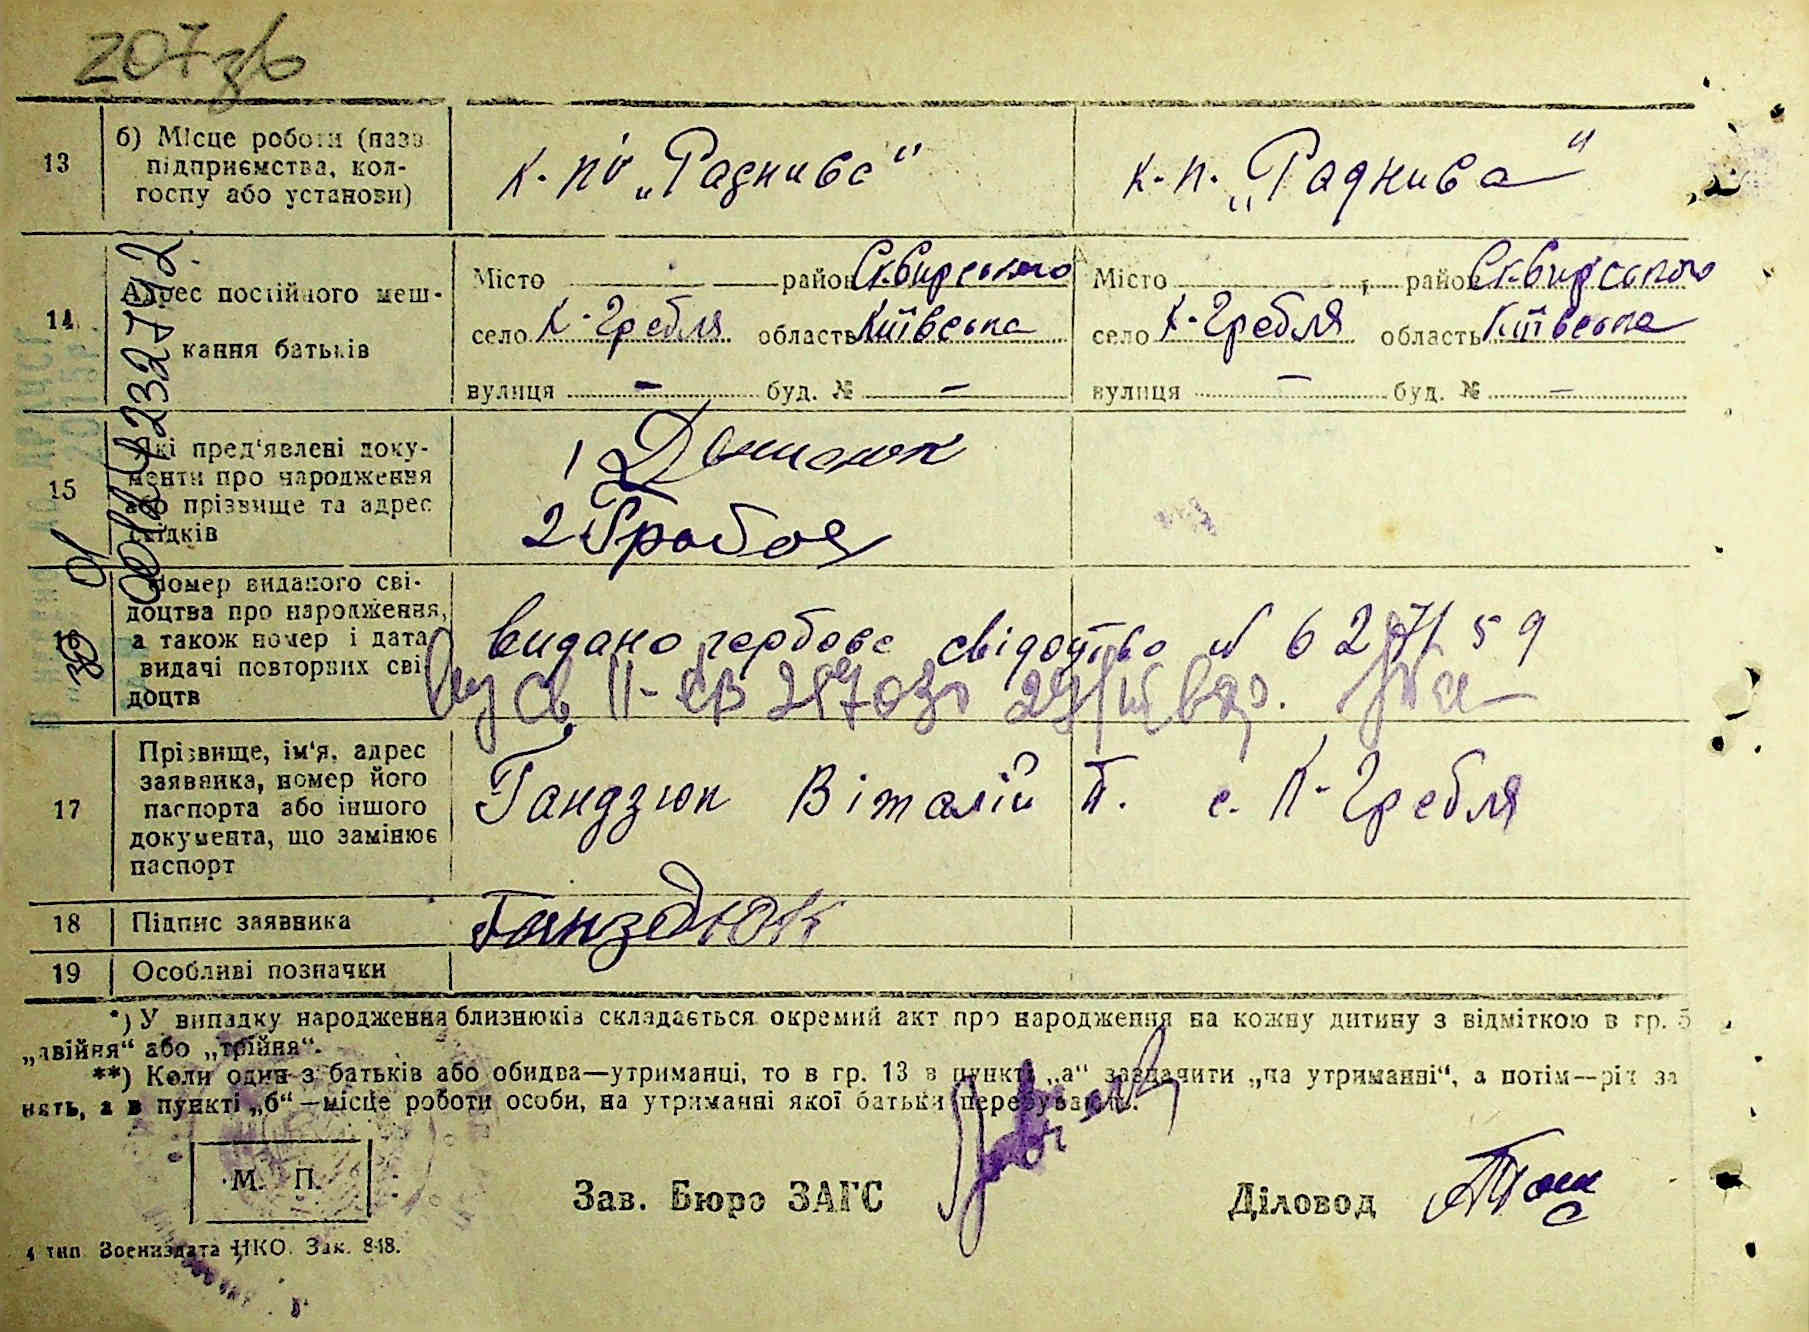 207 зв
13 б) Місце роботи (назва підприємства, колгоспу або установи) к-п "Раднива" к.п. "Раднива"
14 Адрес постійного мешкання батьків
Місто район Сквирського Місто район Сквирського
село К-Гребля область Київська село К-Гребля область Київська
вулиця — буд. № — вулиця — буд. № —
15 Які пред'явлені документи про народження або прізвище та адрес свідків
1
2
16 Номер виданого свідоцтва про народження, а також номер і дата видачі повторних свідоцтв
видано гербове свідоцтво №
17 Прізвище, ім'я, адрес заявника, номер його паспорта або іншого документа, що замінює паспорт
Гандзюк Віталій П. с. К-Гребля
18 Підпис заявника Ганздюк
19 Особливі позначки
*) У випадку народження близнюків складається окремий акт про народження на кожну дитину з відміткою в гр. 5
„двійня" або „трійня".
**) Коли один з батьків або обидва—утриманці, то в гр. 13 в пункті „а" зазначити „на утриманні", а потім—рід за
нять, а в пункті „б"—місце роботи особи, на утриманні якої батьки перебувають.
М. П.
Зав. Бюро ЗАГС Діловод
4 тип. Воениздата НКО. Зак. 848.